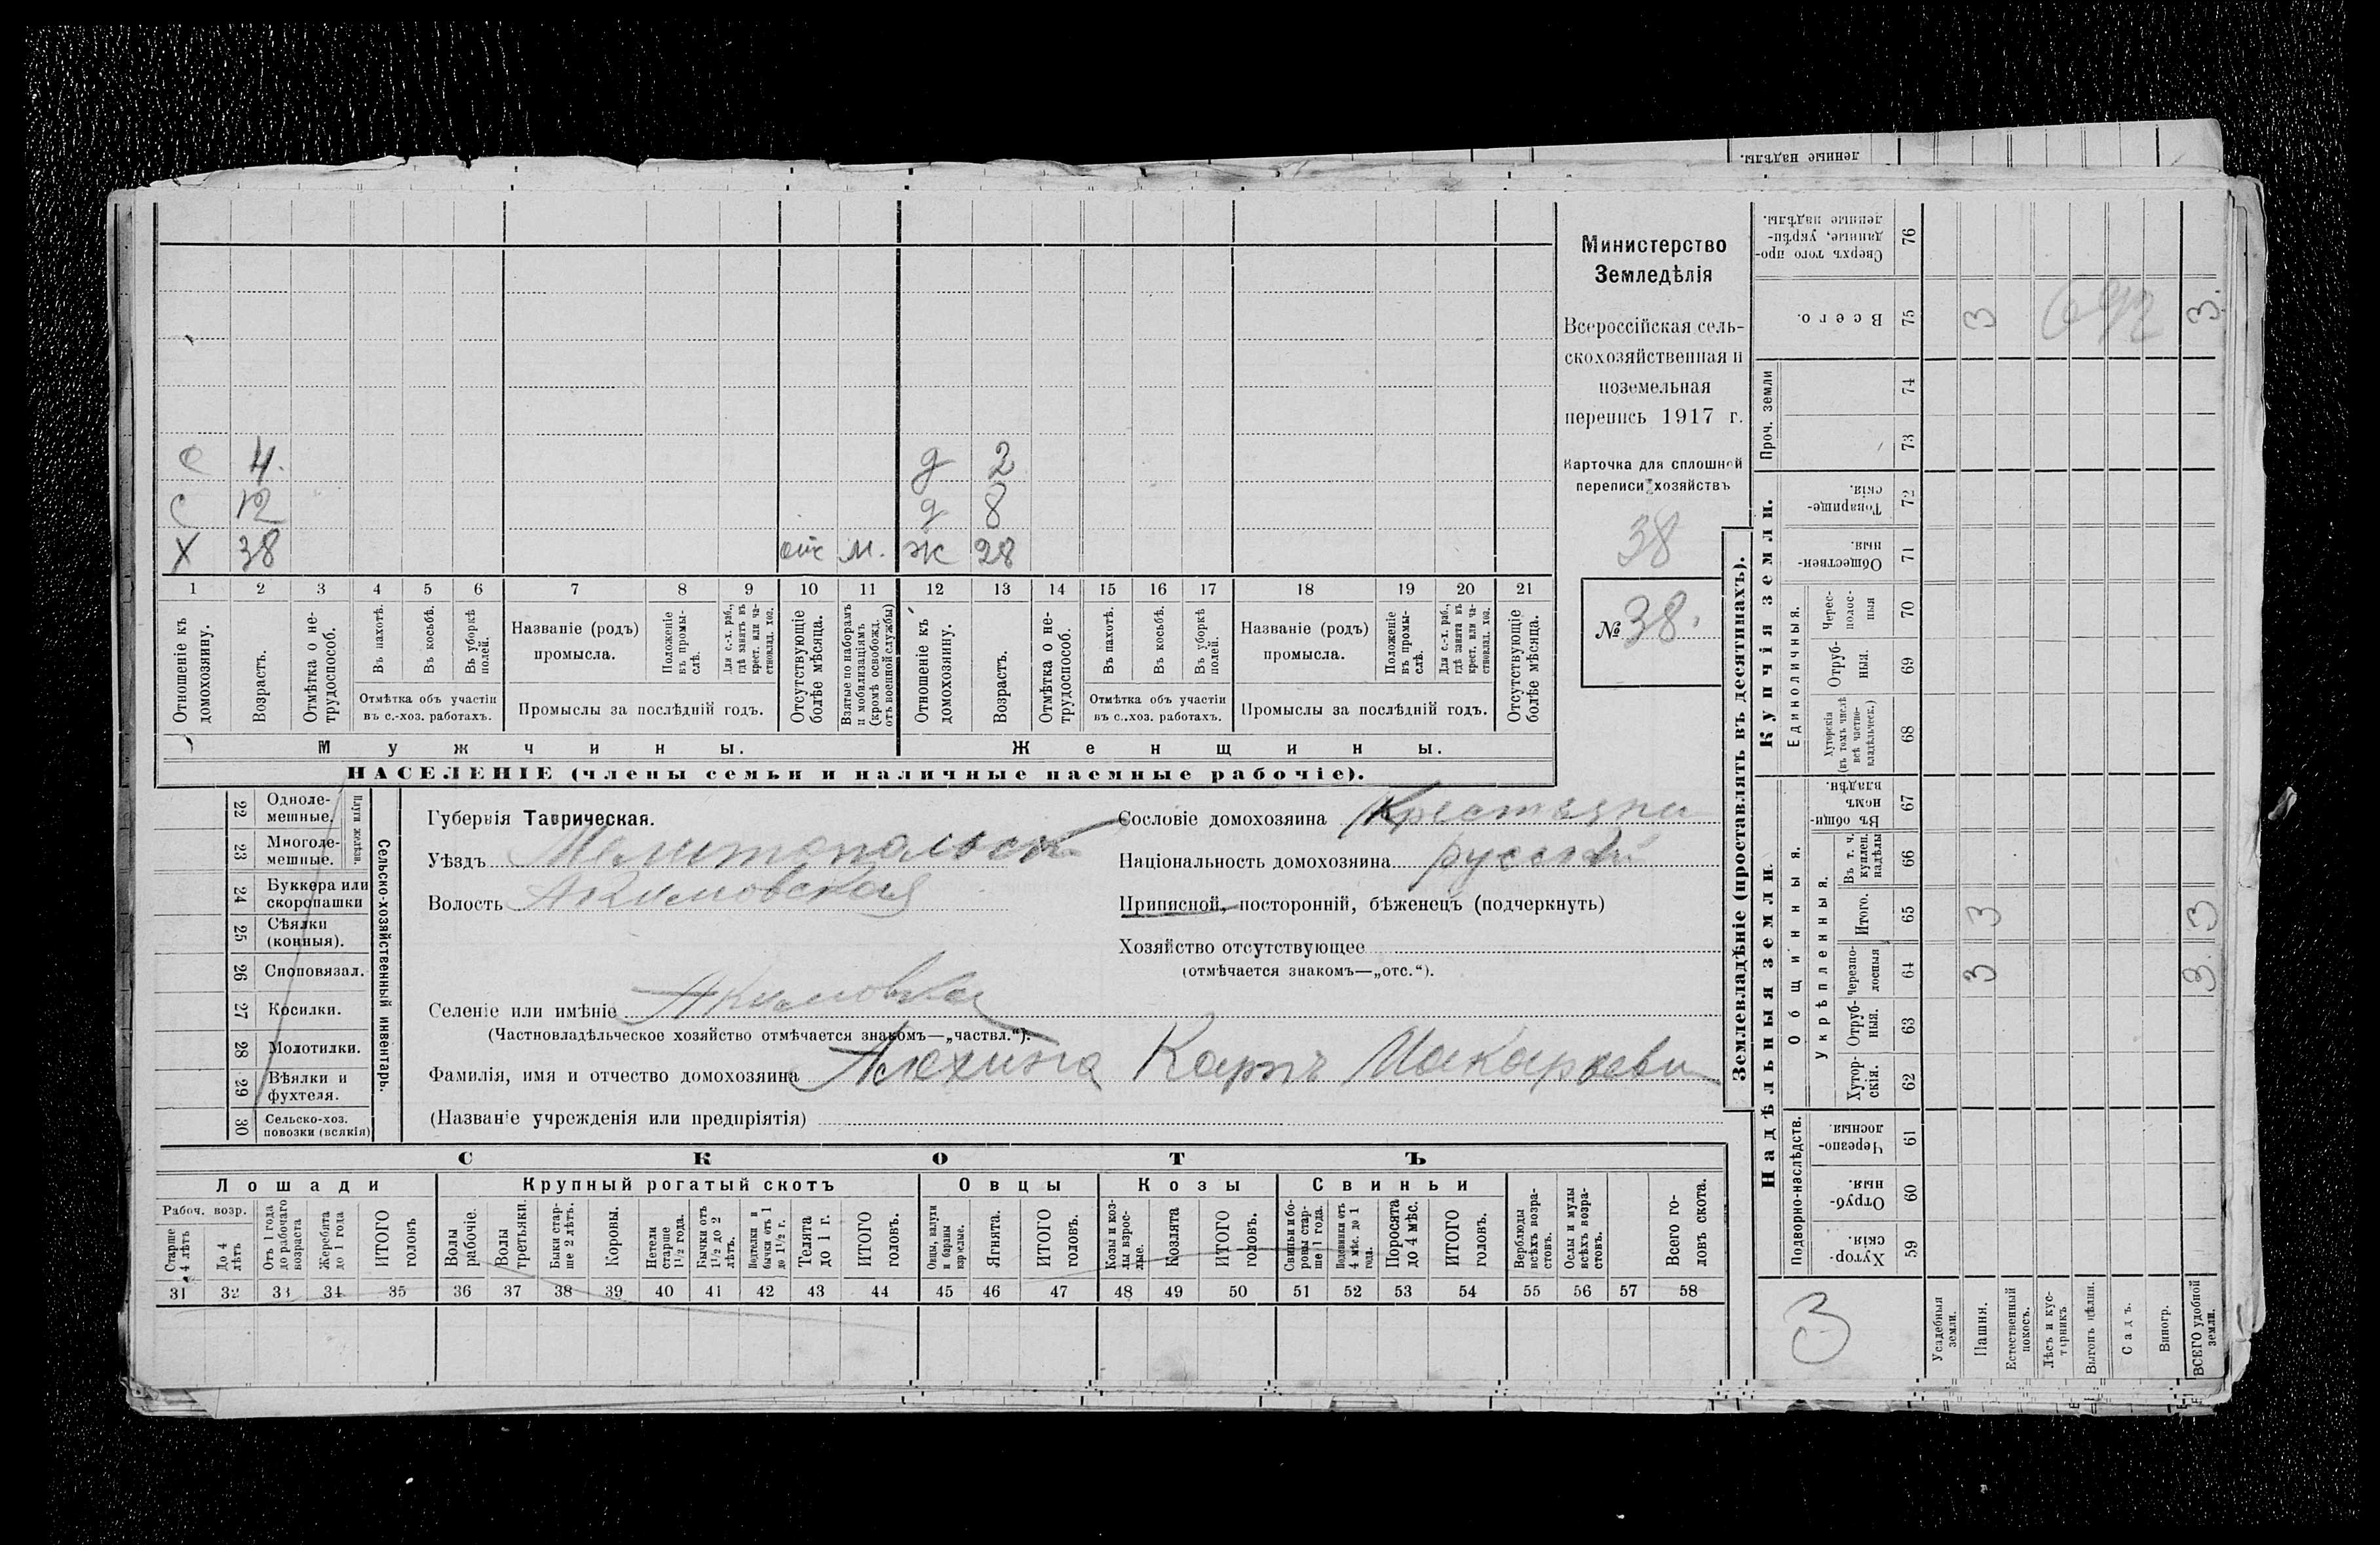 ленные надѣлы.
С 4. д 2
С 12 д 8
Х 38 отс м. ж 28
1 2 3 4 5 6 7 8 9 10 11 12 13 14 15 16 17 18 19 20 21
Отношеніе къ домохозяину.
Возрастъ.
Отмѣтка о нетрудоспособ.
Въ пахотѣ.
Въ косьбѣ.
Въ уборкѣ полей.
Отмѣтка объ участіи
въ с.-хоз. работахъ.
Названіе (родъ)
промысла.
Положеніе въ промы-
слѣ.
Для с.-х. раб.,
гдѣ занятъ въ
крест. или ча-
стновлад. хоз.
Промыслы за послѣдній годъ.
Отсутствующіе
болѣе мѣсяца.
Взятые по наборамъ
и мобилизаціямъ
(кромѣ освобожд.
отъ военной службы)
Отношеніе къ
домохозяину.
Возрастъ.
Отмѣтка о не-
трудоспособ.
Въ пахотѣ.
Въ косьбѣ.
Въ уборкѣ
полей.
Отмѣтка объ участіи
въ с.-хоз. работахъ.
Названіе (родъ)
промысла.
Положеніе
въ промы-
слѣ.
Для с.-х. раб.,
гдѣ занята въ
крест. или ча-
стновлад. хоз.
Промыслы за послѣдній годъ.
Отсутствующіе
болѣе мѣсяца.
Мужчины. Женщины.
НАСЕЛЕНІЕ (члены семьи и наличные наемные рабочіе).
Министерство
Земледѣлія
Всероссійская сель-
скохозяйственная и
поземельная
перепись 1917 г.
Карточка для сплошной
переписи хозяйствъ
38
№ 38.
22 Одноле-
мешные.
23 Многоле-
мешные.
Плуги желѣзн.
24 Буккера или
скоропашки
25 Сѣялки
(конныя).
26 Сноповязал.
27 Косилки.
28 Молотилки.
29 Вѣялки и
фухтеля.
30 Сельско-хоз.
повозки (всякія)
Сельско-хозяйственный инвентарь.
Губернія Таврическая.
Уѣздъ Мелитопольск
Волость Акимовская
Селеніе или имѣніе Акимовка
(Частновладѣльческое хозяйство отмѣчается знакомъ—„частвл.“).
Фамилія, имя и отчество домохозяина Алехина Карпъ Макарьеви
(Названіе учрежденія или предпріятія)
Сословіе домохозяина Крестьяни
Національность домохозяина русскій
Приписной, посторонній, бѣженецъ (подчеркнуть)
Хозяйство отсутствующее
(отмѣчается знакомъ—„отс.“).
СКОТЪ
Лошади Крупный рогатый скотъ Овцы Козы Свиньи
Рабоч. возр.
Старше
4 лѣтъ
До 4
лѣтъ
Отъ 1 года
до рабочаго
возраста
Жеребята
до 1 года
ИТОГО
головъ
Волы
рабочіе.
Волы
третьяки.
Быки стар-
ше 2 лѣтъ.
Коровы.
Нетели
старше
1½ года.
Бычки отъ
1½ до 2
лѣтъ.
Подтелки и
бычки отъ 1
до 1½ г.
Телята
до 1 г.
ИТОГО
головъ.
Овцы, валухи
и бараны
взрослые.
Ягнята.
ИТОГО
головъ.
Козы и коз-
лы взрос-
лые.
Козлята
ИТОГО
головъ.
Свиньи и бо-
ровы стар-
ше 1 года.
Подсвинки отъ
4 мѣс. до 1
года.
Поросята
до 4 мѣс.
ИТОГО
головъ.
Верблюды
всѣхъ возра-
стовъ.
Ослы и мулы
всѣхъ возра-
стовъ.
Всего го-
ловъ скота.
31 32 33 34 35 36 37 38 39 40 41 42 43 44 45 46 47 48 49 50 51 52 53 54 55 56 57 58
Землевладѣніе (проставлять въ десятинахъ).
Надѣльныя земли.
Купчія земли.
Проч. земли
Подворно-наслѣдств.
Общинныя.
Укрѣпленныя.
Единоличныя.
Хутор-
скія. 59
Отруб-
ныя. 60
Черезпо-
лосныя. 61
Хутор-
скія. 62
Отруб-
ныя. 63
Черезпо-
лосныя 64 3 3.
Итого. 65 3 3
Въ т. ч.
куплен.
надѣлы 66
Въ общин-
номъ
владѣн. 67
Хуторскія
(въ томъ числѣ
всѣ частно-
владѣльческ.) 68
Отруб-
ныя. 69
Черес-
полос-
ныя 70
Обществен-
ныя. 71
Товарище-
скія. 72
73
74
Всего. 75 3 3.
Сверхъ того про-
данные, укрѣп-
ленные надѣлы. 76
3
Усадебныя
земли.
Пашня.
Естественный
покосъ.
Лѣсъ и кус-
тарникъ
Выгонъ цѣлин.
Садъ.
Виногр.
ВСЕГО удобной
земли.